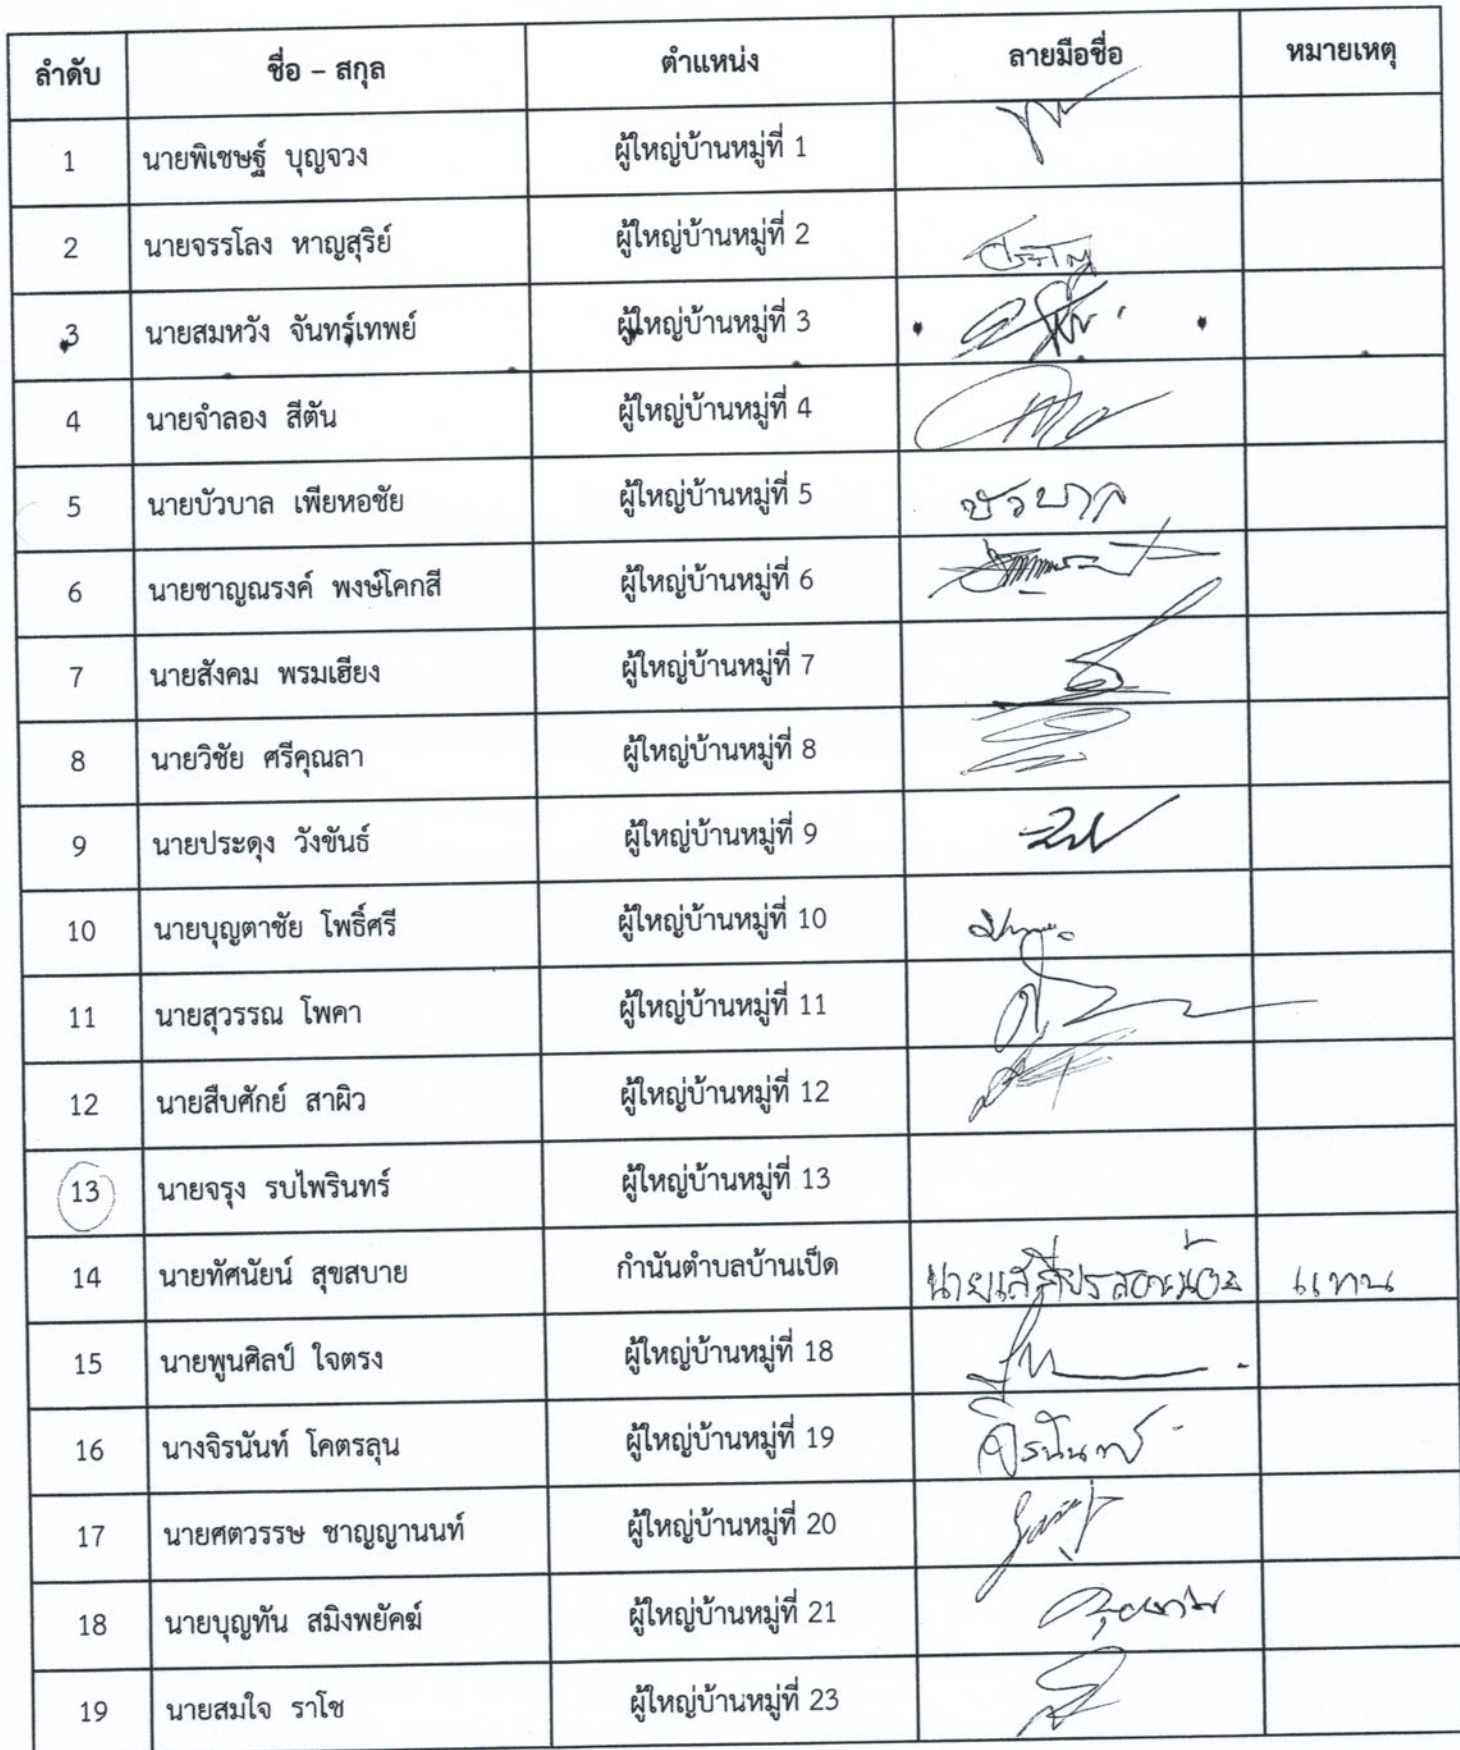 ลำดับ ชื่อ – สกุล ตำแหน่ง ลายมือชื่อ หมายเหตุ
1 นายพิเชษฐ์ บุญจวง ผู้ใหญ่บ้านหมู่ที่ 1
2 นายจรรโลง หาญสุริย์ ผู้ใหญ่บ้านหมู่ที่ 2
3 นายสมหวัง จันทร์เทพย์ ผู้ใหญ่บ้านหมู่ที่ 3
4 นายจำลอง สีตัน ผู้ใหญ่บ้านหมู่ที่ 4
5 นายบัวบาล เพียหอชัย ผู้ใหญ่บ้านหมู่ที่ 5 บัวบาล
6 นายชาญณรงค์ พงษ์โคกสี ผู้ใหญ่บ้านหมู่ที่ 6
7 นายสังคม พรมเฮียง ผู้ใหญ่บ้านหมู่ที่ 7
8 นายวิชัย ศรีคุณลา ผู้ใหญ่บ้านหมู่ที่ 8
9 นายประดุง วังขันธ์ ผู้ใหญ่บ้านหมู่ที่ 9
10 นายบุญตาชัย โพธิ์ศรี ผู้ใหญ่บ้านหมู่ที่ 10
11 นายสุวรรณ โพคา ผู้ใหญ่บ้านหมู่ที่ 11
12 นายสืบศักย์ สาผิว ผู้ใหญ่บ้านหมู่ที่ 12
13 นายจรุง รบไพรินทร์ ผู้ใหญ่บ้านหมู่ที่ 13
14 นายทัศนัยน์ สุขสบาย กำนันตำบลบ้านเป็ด แทน
15 นายพูนศิลป์ ใจตรง ผู้ใหญ่บ้านหมู่ที่ 18
16 นางจิรนันท์ โคตรลุน ผู้ใหญ่บ้านหมู่ที่ 19 จิรนันท์
17 นายศตวรรษ ชาญญานนท์ ผู้ใหญ่บ้านหมู่ที่ 20
18 นายบุญทัน สมิงพยัคฆ์ ผู้ใหญ่บ้านหมู่ที่ 21
19 นายสมใจ ราโช ผู้ใหญ่บ้านหมู่ที่ 23